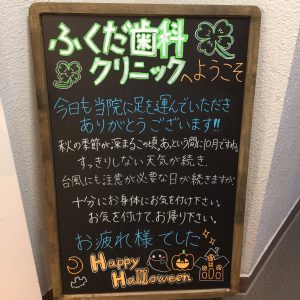 ふくだ歯科
クリニックへようこそ
今日も当院に足を運んでいただき
ありがとうございます!!
秋の季節が深まるこの頃。あっという間に10月ですね。
すっきりしない天気が続き、
台風にも注意が必要な日が続きますが、
十分にお身体にお気を付け下さい。
お気を付けて、お帰り下さい。
お疲れ様でした
Happy
Halloween